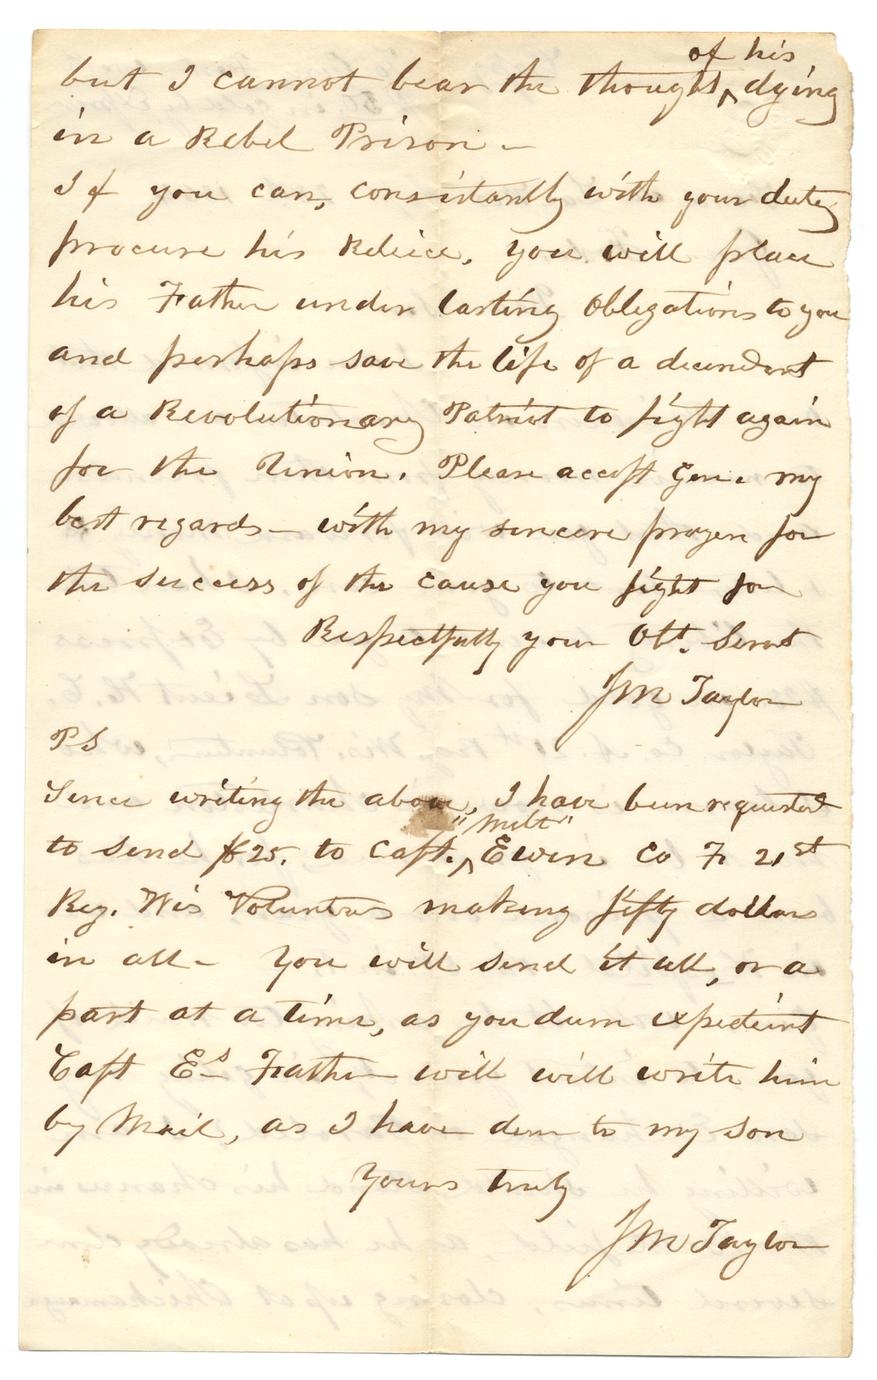 but I cannot bear the thought of his dying
in a Rebel Prison –
If you can, consistantly with your duty
procure his Releice, you will place
his Father under lasting obligations to you
and perhaps save the life of a decendant
of a Revolutionary Patriot to fight again
for the Union. Please accept Gen. my
best regards – with my sincere prayer for
the success of the cause you fight for
Respectfully your Obt. Servt
JM Taylor
PS
Since writing the above, I have been requested
to send $25. to Capt. "Milt" Ewen Co F. 21st
Reg. Wis Volunteers making fifty dollars
in all – You will send it all, or a
part at a time, as you deem expedient
Capt Es Father will will write him
by Mail, as I have done to my son
Yours truly
JM Taylor